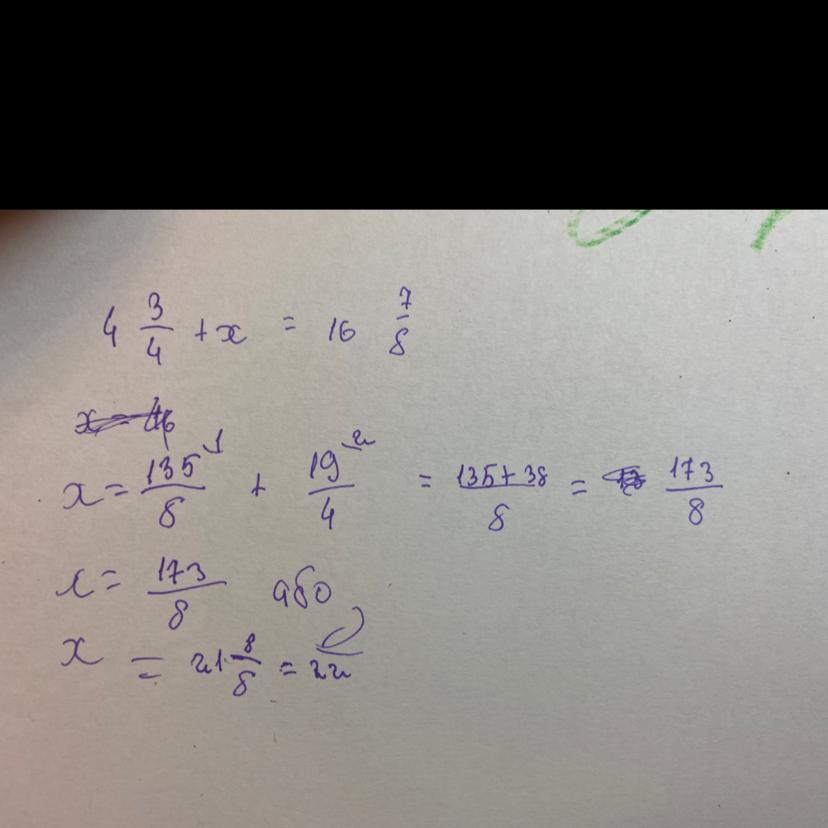 4 3/4 + x = 16 7/8
x = 135/8 + 19/4 = 135+38/8 = 173/8
x = 173/8 або
x = 21 8/8 = 22